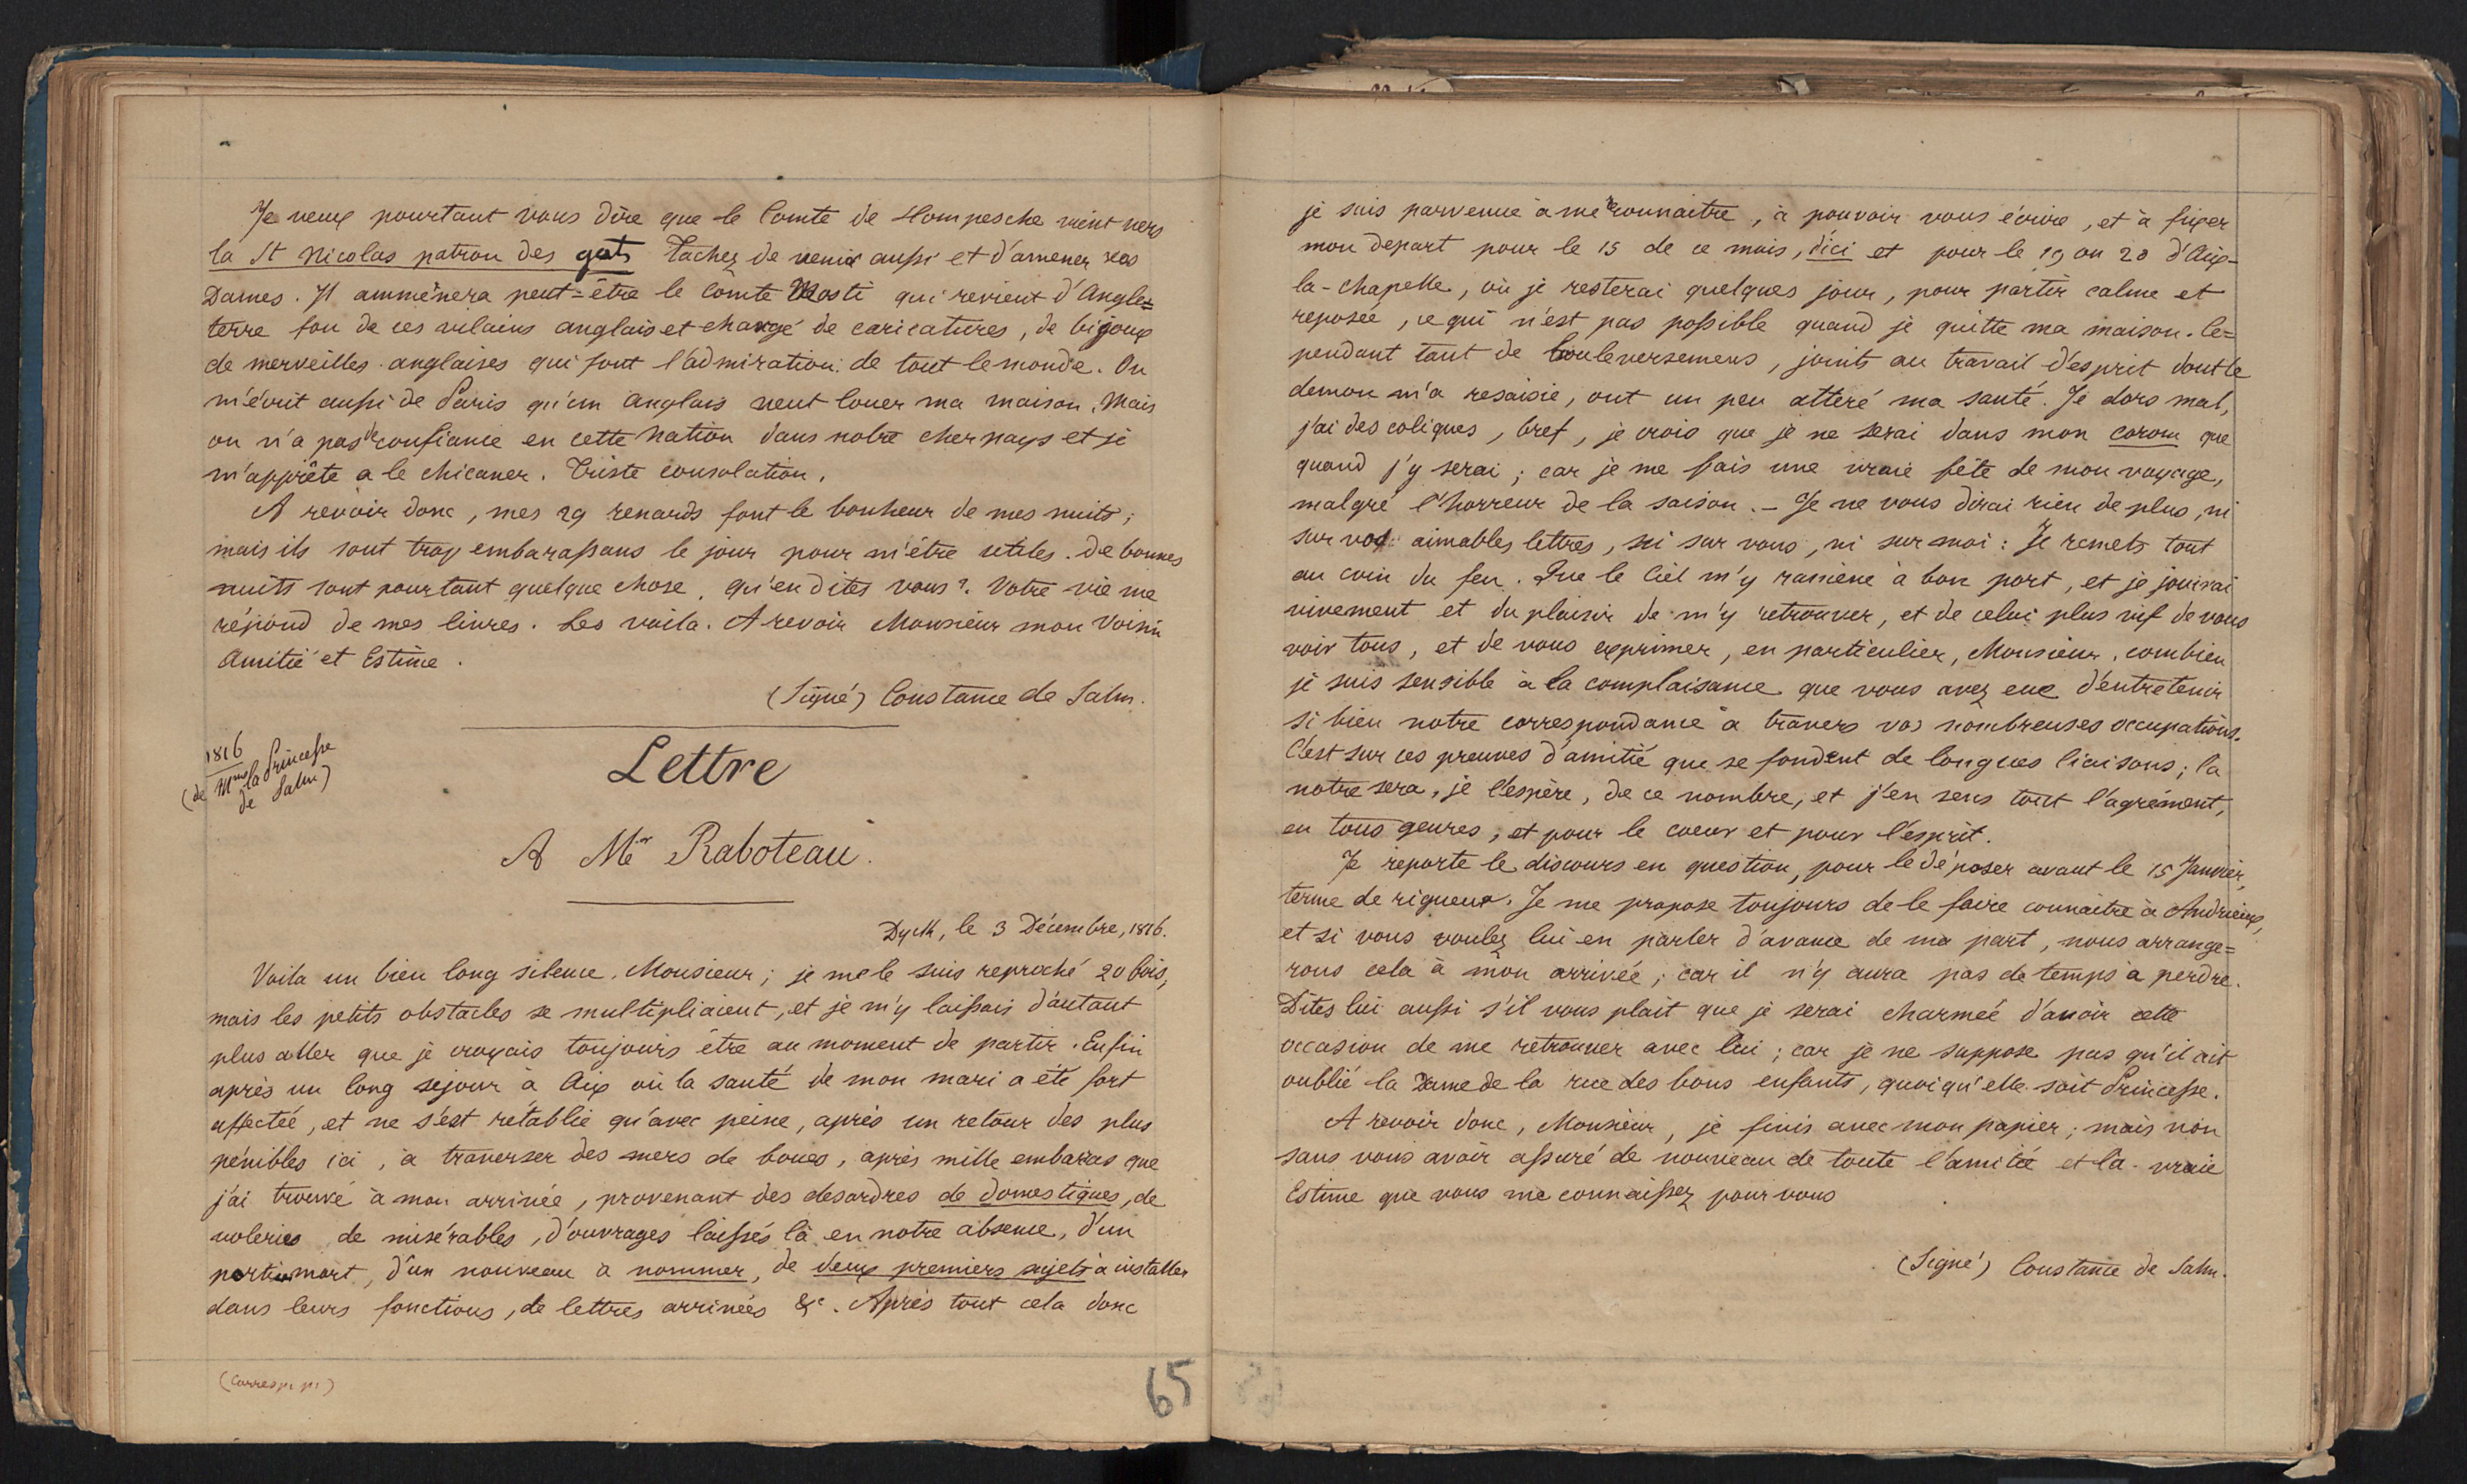 Je veux pourtant vous dire que le Comte de Hompesche vient vers
la St Nicolas patron des gats Tachez de venir aussi et d'amener vos
Dames. Il ammènera peut-être le Comte Mosti qui revient d'Angle=
terre fou de ces vilains anglais et chargé de caricatures, de bijoux
de merveilles anglaises qui font l'admiration de tout le monde. On
m'écrit aussi de Paris qu'un anglais veut louer ma maison. Mais
on n'a pas de confiance en cette Nation dans notre cher pays et je
m'apprête a le chicaner. Triste consolation.
A revoir donc, mes 29 renards font le bonheur de mes nuits;
mais ils sont trop embarassans le jour pour m'être utiles. De bonnes
nuits sont pourtant quelque chose, qu'en dites vous? Votre vie me
répond de mes livres. Les voila. A revoir Monsieur mon Voisin
Amitié et Estime.
(Signé) Constance de Salm.
1816
(de Mme la Princesse
de Salm)
Lettre
A Mr Raboteau.
Dyck, le 3 Décembre, 1816.
Voila un bien long silence, Monsieur; je me le suis reproché 20 fois,
mais les petits obstacles se multipliaient, et je m'y laissais d'autant
plus aller que je croyais toujours être au moment de partir. Enfin
après un long séjour à Aix où la santé de mon mari a été fort
affectée, et ne s'est rétablie qu'avec peine, après un retour des plus
pénibles ici, à traverser des mers de boues, après mille embaras que
j'ai trouvé à mon arrivée, provenant des desordres de domestiques, de
voleries de misérables, d'ouvrages laissés là en notre absence, d'un
mort, d'un nouveau à nommer, de deux premiers sujets à installer
dans leurs fonctions, de lettres arrivées &c. Après tout cela donc
(Corresp.
65
je suis parvenue à me reconnaitre, à pouvoir vous écrire, et à fixer
mon depart pour le 15 de ce mois, d'ici et pour le 19 ou 20 d'Aix-
la-chapelle, où je resterai quelques jour, pour partir calme et
reposée, ce qui n'est pas possible quand je quitte ma maison. Ce=
pendant tant de bouleversemens, joints au travail d'esprit dont le
demon m'a resaisie, ont un peu altéré ma santé. Je dors mal,
j'ai des coliques, bref, je crois que je ne serai dans mon carom que
quand j'y serai; car je me fais une vraie fête de mon voyage,
malgré l'horreur de la saison. - Je ne vous dirai rien de plus, ni
sur vos aimables lettres, ni sur vous, ni sur moi: Je remets tout
au coin du feu. Que le Ciel m'y ramène à bon port, et je jouirai
vivement et du plaisir de m'y retrouver, et de celui plus vif de vous
voir tous, et de vous exprimer, en particulier, Monsieur, combien
je suis sensible à la complaisance que vous avez eue d'entretenir
si bien notre correspondance à travers vos nombreuses occupations.
C'est sur ces preuves d'amitié que se fondent de longues liaisons; la
notre sera, je l'espère, de ce nombre, et j'en sens tout l'agrément,
en tous genres, et pour le coeur et pour l'esprit.
Je reporte le discours en question, pour le déposer avant le 15 Janvier,
terme de rigueur. Je me propose toujours de le faire connaitre à Andrieux,
et si vous voulez lui en parler d'avance de ma part, nous arrange=
rons cela à mon arrivée; car il n'y aura pas de temps à perdre.
Dites lui aussi s'il vous plait que je serai charmée d'avoir cette
occasion de me retrouver avec lui; car je ne suppose pas qu'il ait
oublié la Dame de la rue des bons enfants, quoiqu'elle soit Princesse.
A revoir donc, Monsieur, je finis avec mon papier; mais non
sans vous avoir assuré de nouveau de toute l'amitié et la vraie
Estime que vous me connaissez pour vous
(Signé) Constance de Salm.